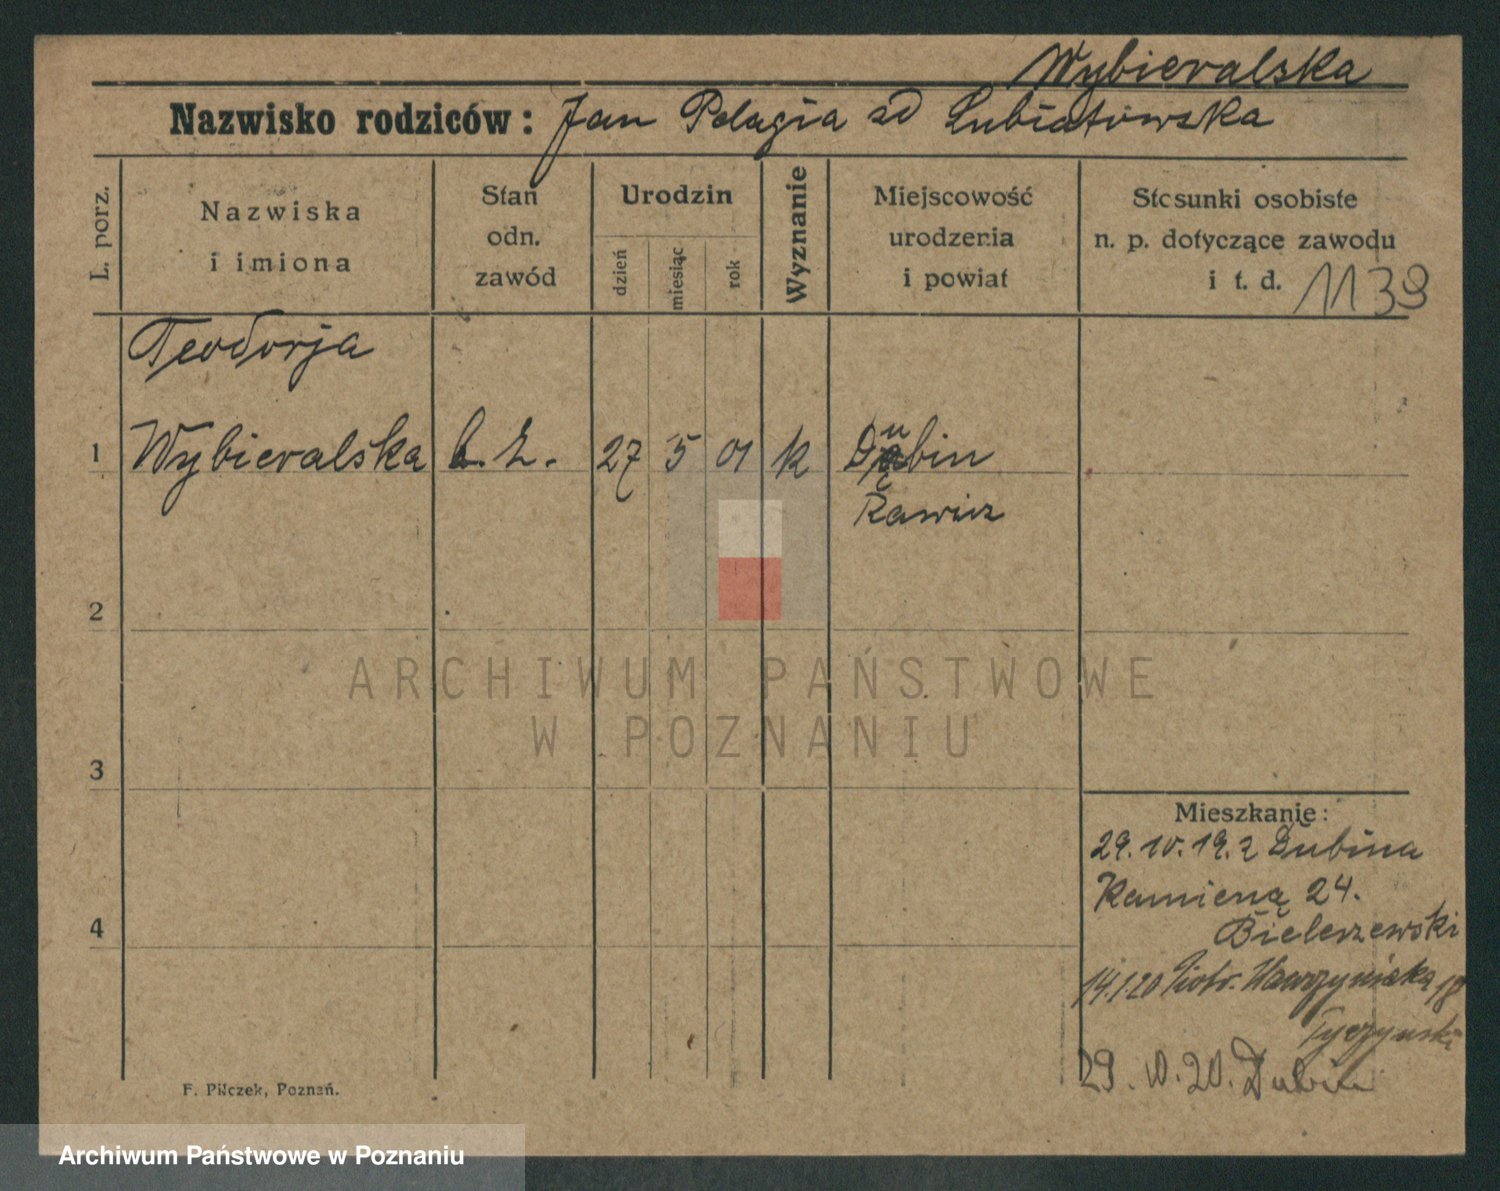 Wybieralska
Nazwisko rodziców: Jan Pelagia sd Lubiatowska
L. porz.
Nazwiska
i imiona
Stan
odn.
zawód
Urodzin
dzień
miesiąc
rok
Wyznanie
Miejscowość
urodzenia
i powiat
Stosunki osobiste
n. p. dotyczące zawodu
i t. d. 1139
Teodorja
1 Wybieralska b. z. 27 5 01 k Dubin
Rawicz
2
3
4
ARCHIWUM PAŃSTWOWE
W POZNANIU
Mieszkanie:
29. 10. 19. z Dubina
Kamieną 24.
Bielerzewski
14.1 20 Piotr. Wawrzyniaka 18
Tyczynski
29. 10. 20. Dubin
F. Pilczek, Poznań.
Archiwum Państwowe w Poznaniu